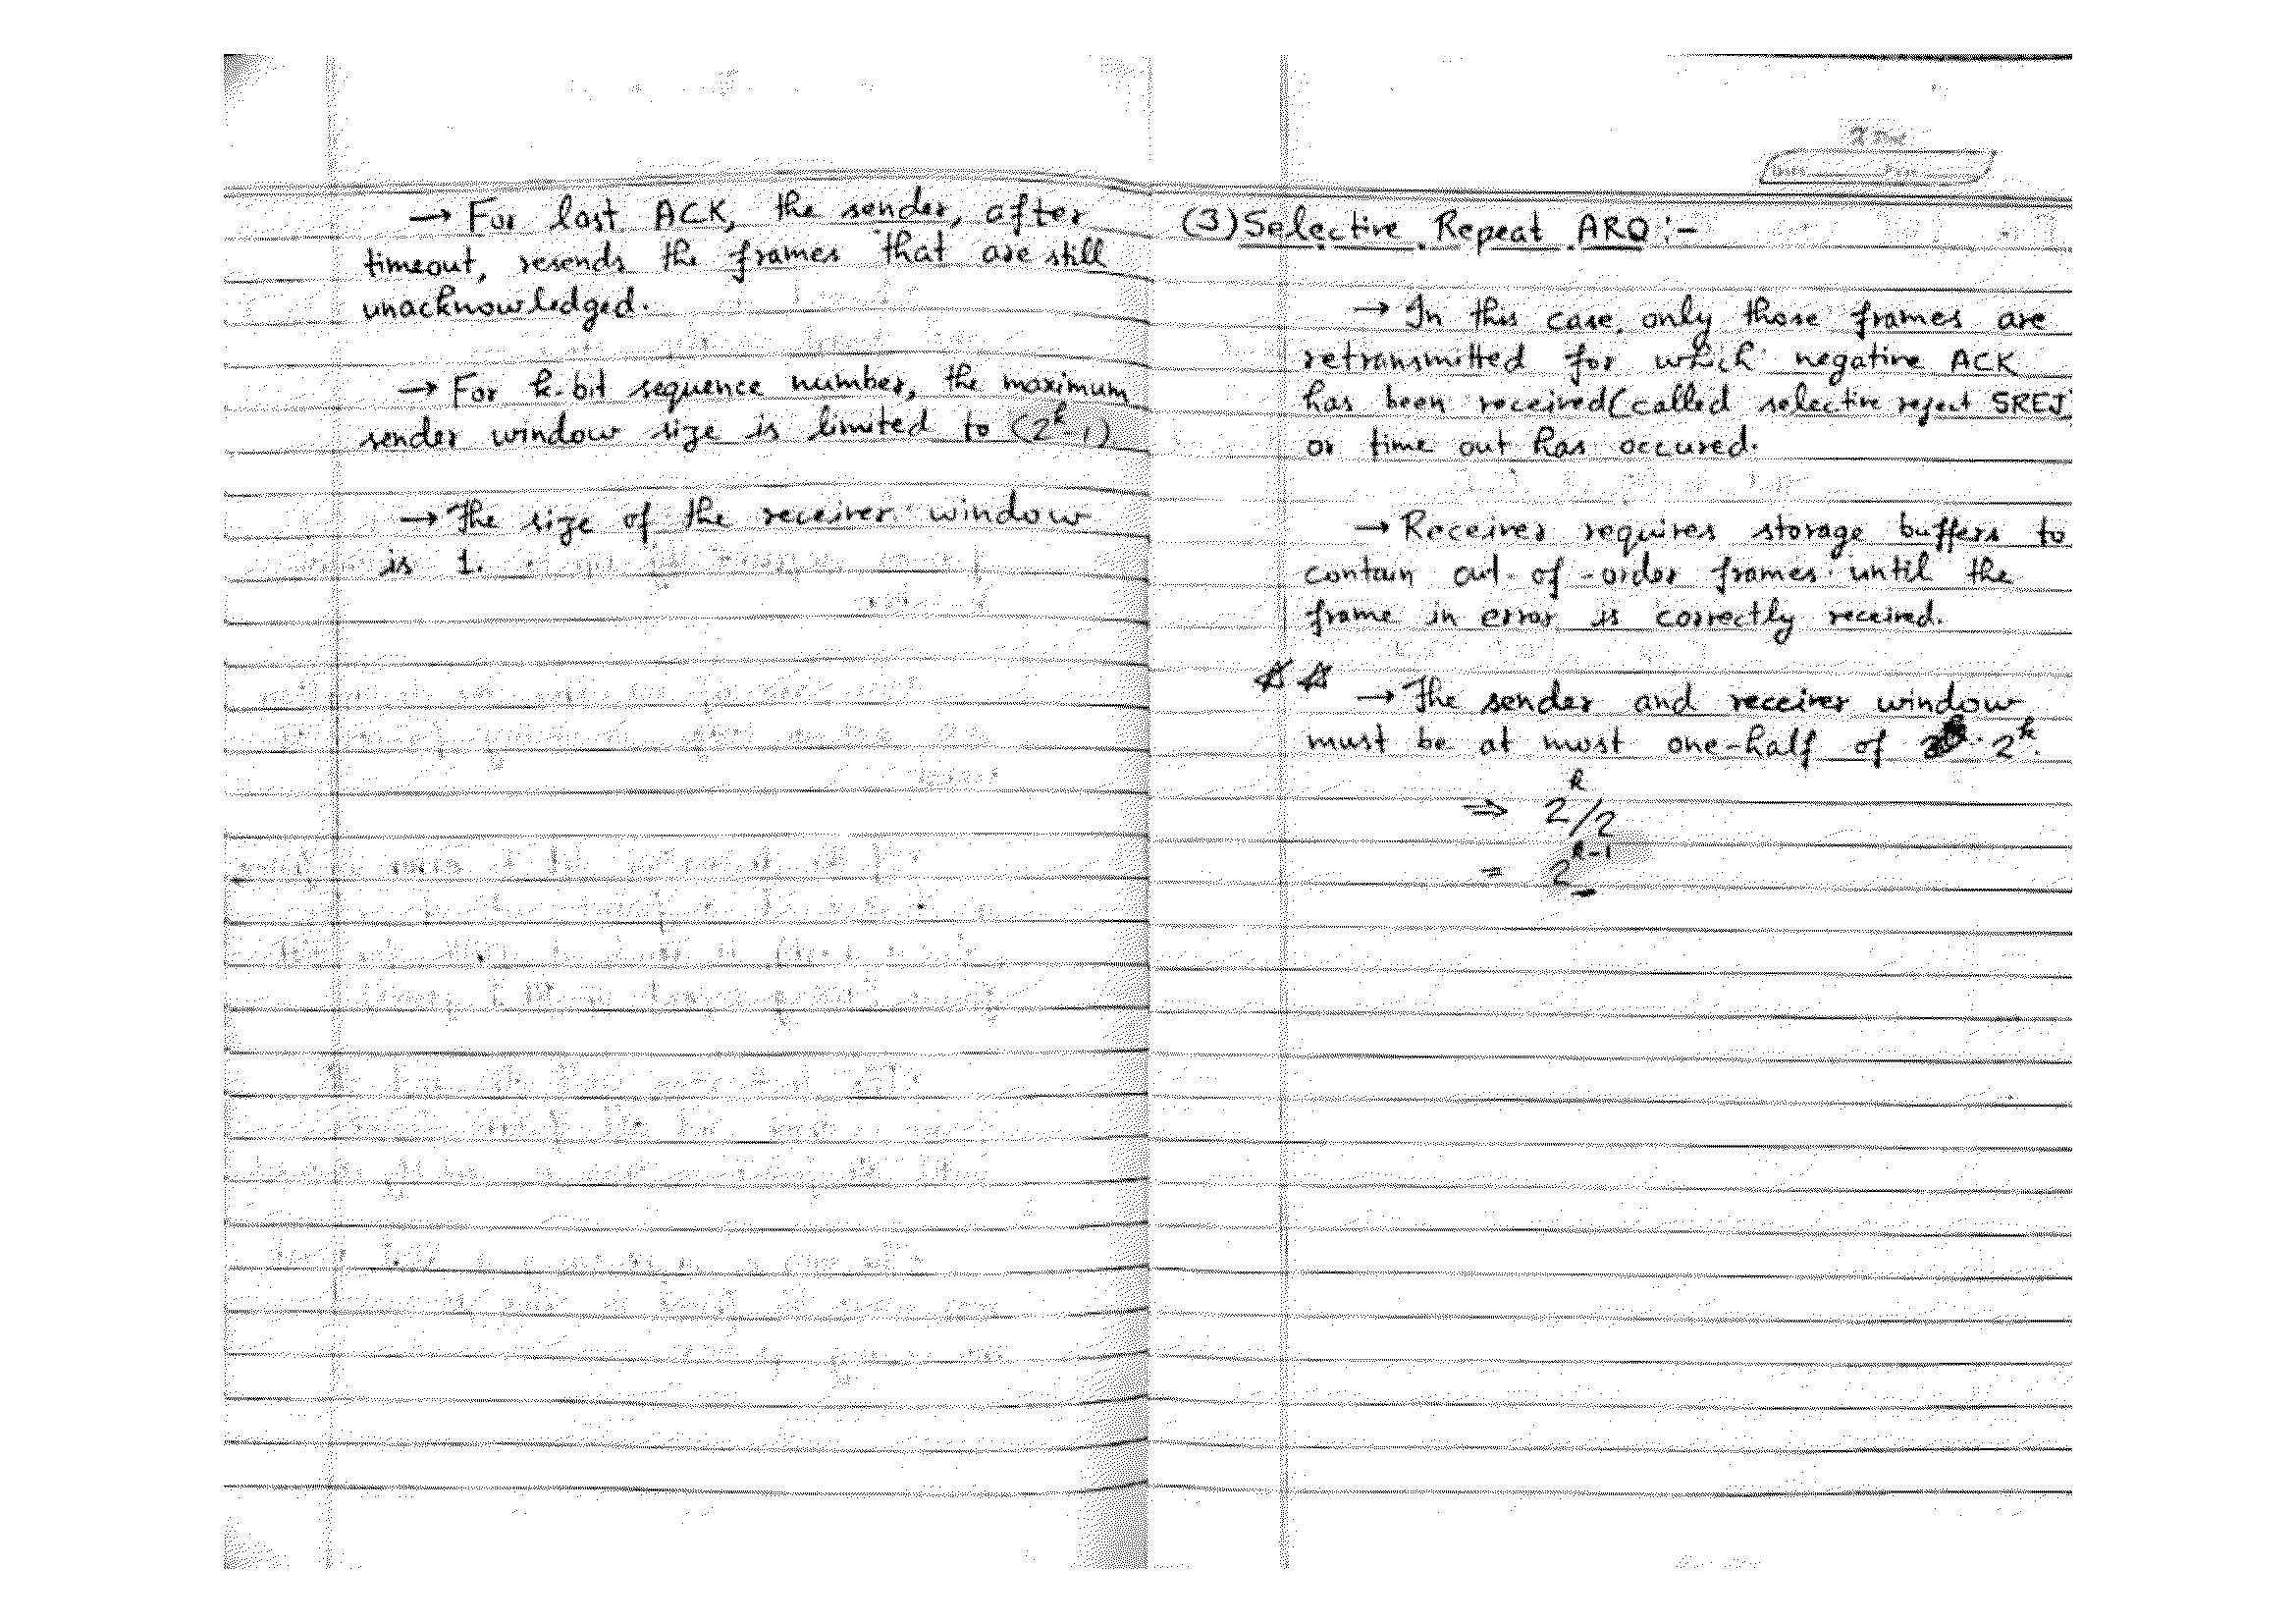 → For last ACK, the sender, after
timeout, resends the frames that are still
unacknowledged.
→ For k-bit sequence number, the maximum
sender window size is limited to (2^k-1)
→ The size of the receiver window
is 1.
(3) Selective Repeat ARQ :-
→ In this case, only those frames are
retransmitted for which negative ACK
has been received (called selective reject SREJ
or time out has occured.
→ Receiver requires storage buffers to
contain out-of-order frames until the
frame in error is correctly received.
→ The sender and receiver window
must be at most one-half of 2^k.
⇒ 2^k/2
= 2^k-1